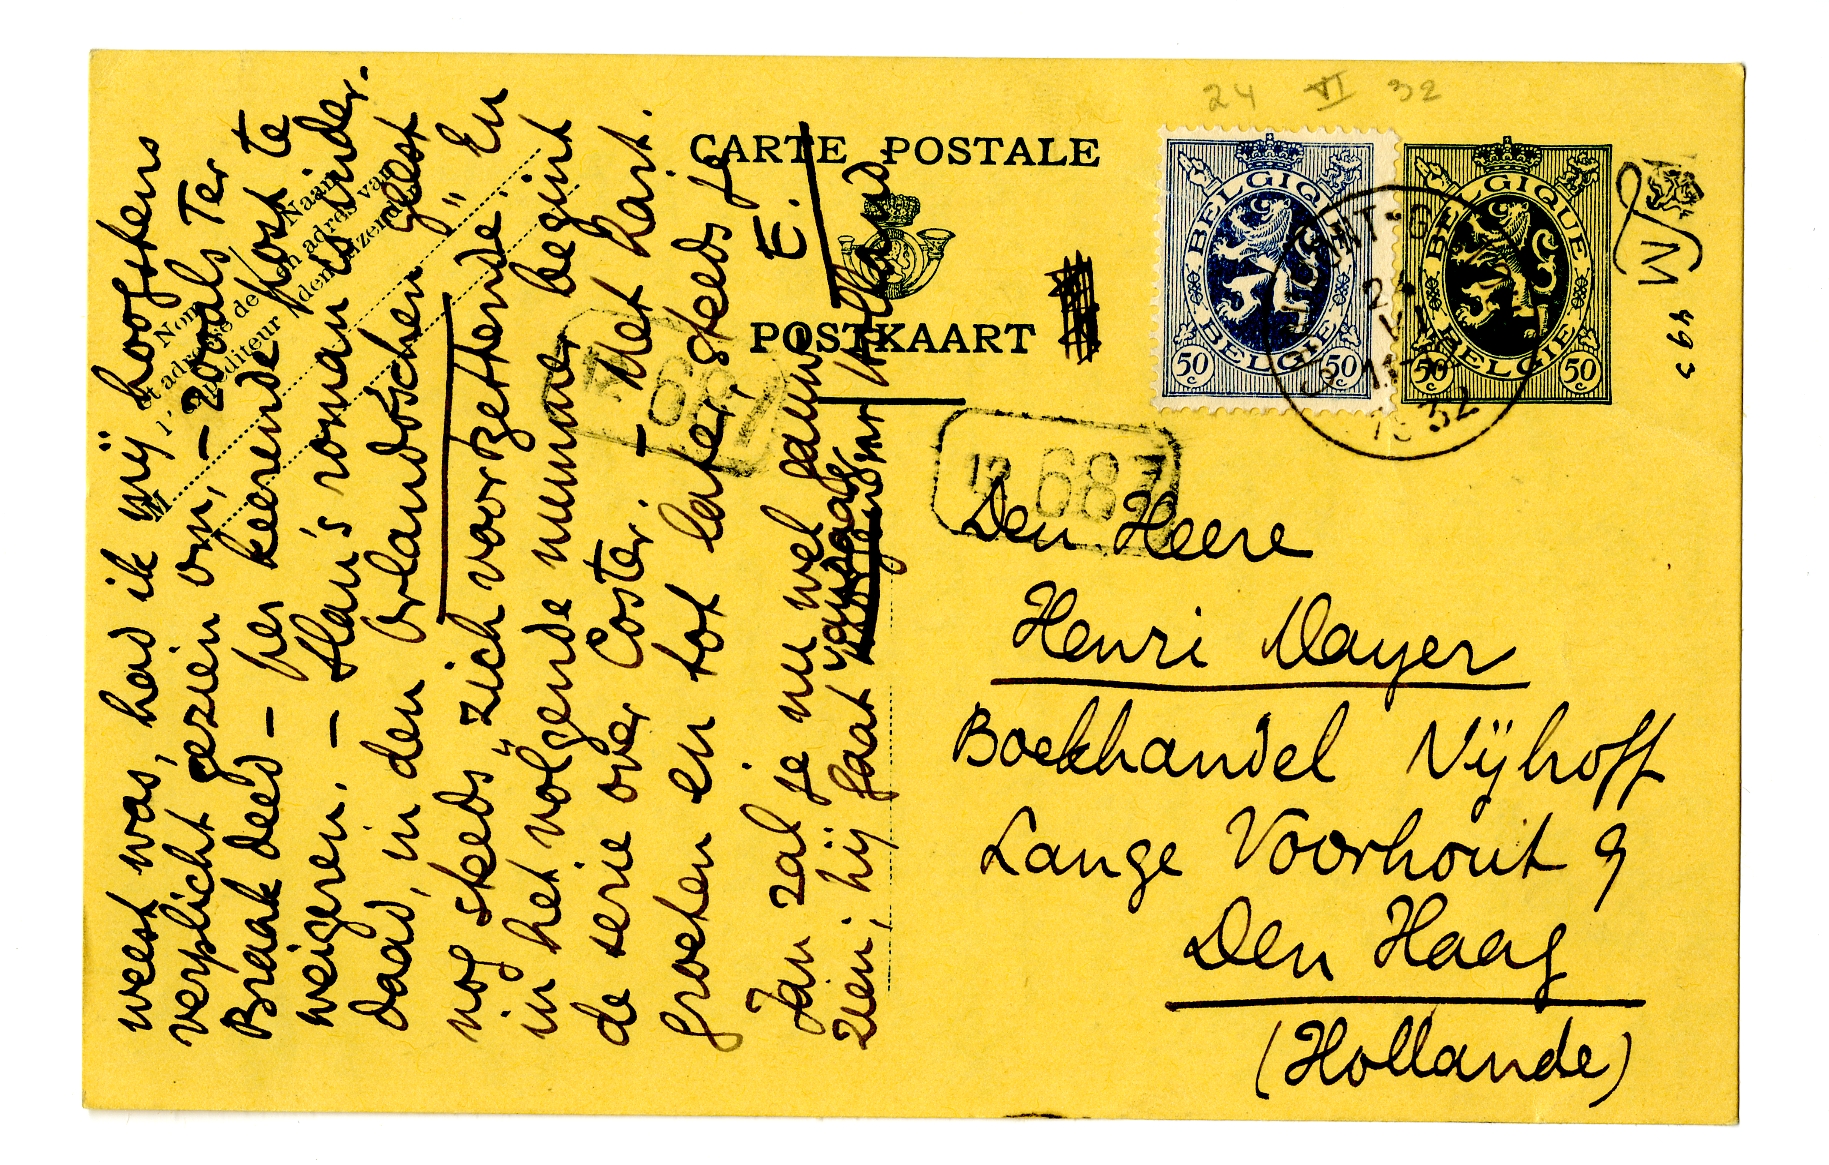 24 VI 32
CARTE POSTALE
POSTKAART
BELGIQUE
BELGIE
50 c
50 c
BELGIQUE
BELGIE
50 c
50 c
32
M 49
Nom
et adresse de
l'expéditeur
Naam
en adres van
den afzender
687
687
weest was, had ik mij hoogstens
verplicht gezien om, – zooals Ter
Braak deed – per keerende post te
weigeren. – Han's roman is minder.
daad, in den Orlandoschen geest
nog steeds "zich voortzettende". En
in het volgende nummer begint
de serie over Coster. – Met hart.
groeten en tot later, steeds je
E.
Jan zal je nu wel gauw
zien; hij gaat vandaag naar Holland
Den Heere
Henri Mayer
Boekhandel Nijhoff
Lange Voorhout 9
Den Haag
(Hollande)